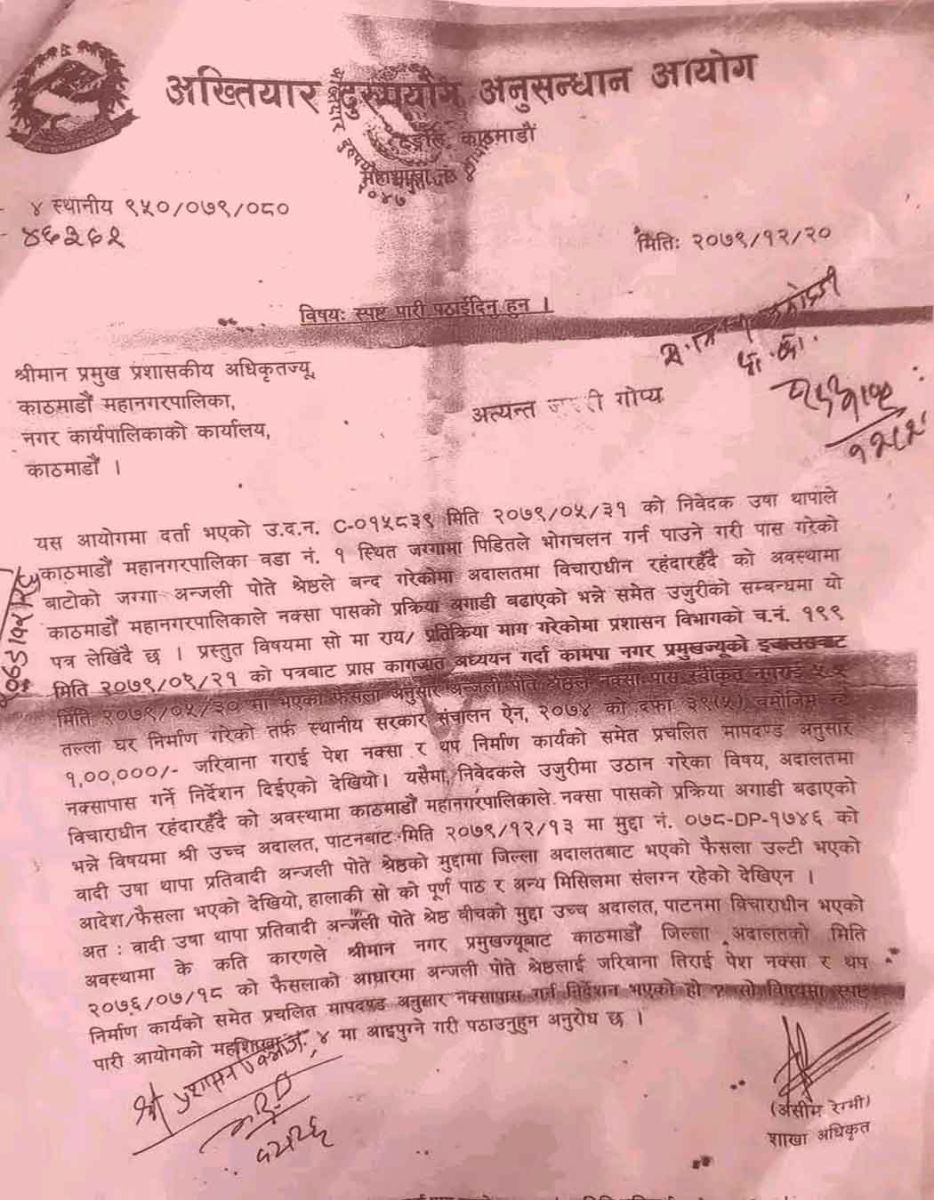 अख्तियार दुरुपयोग अनुसन्धान आयोग
काठमाडौं
४ स्थानीय ९५०/०७९/०८०
४६२६१
मितिः २०७९/१२/२०
विषयः स्पष्ट पारी पठाईदिनु हुन ।
श्रीमान प्रमुख प्रशासकीय अधिकृतज्यू,
काठमाडौं महानगरपालिका,
अत्यन्त जरुरी गोप्य
नगर कार्यपालिकाको कार्यालय,
काठमाडौं ।
यस आयोगमा दर्ता भएको उ.द.न. C-०१५८३९ मिति २०७९/०५/३१ को निवेदक उषा थापाले
काठमाडौं महानगरपालिका वडा नं. १ स्थित जग्गामा पिडितले भोगचलन गर्न पाउने गरी पास गरेको
बाटोको जग्गा अन्जली पोते श्रेष्ठले बन्द गरेकोमा अदालतमा विचाराधीन रहंदारहँदै को अवस्थामा
काठमाडौं महानगरपालिकाले नक्सा पासको प्रक्रिया अगाडी बढाएको भन्ने समेत उजुरीको सम्बन्धमा यो
पत्र लेखिंदै छ । प्रस्तुत विषयमा सो मा राय/ प्रतिक्रिया माग गरेकोमा प्रशासन विभागको च.नं. १९९
मिति २०७९/०९/२१ को पत्रबाट प्राप्त कागजात अध्ययन गर्दा कामपा नगर प्रमुखज्यूको इजलासबाट
मिति २०७९/०५/३० मा भएको फैसला अनुसार अन्जली पोते श्रेष्ठले नक्सा पास स्वीकृत नगराई
तल्ला घर निर्माण गरेको तर्फ स्थानीय सरकार संचालन ऐन, २०७४ को दफा ३९(५) बमोजिम
१,००,०००/- जरिवाना गराई पेश नक्सा र थप निर्माण कार्यको समेत प्रचलित मापदण्ड अनुसार
नक्सापास गर्ने निर्देशन दिईएको देखियो। यसैमा, निवेदकले उजुरीमा उठान गरेका विषय, अदालतमा
विचाराधीन रहंदारहँदै को अवस्थामा काठमाडौं महानगरपालिकाले नक्सा पासको प्रक्रिया अगाडी बढाएको
भन्ने विषयमा श्री उच्च अदालत, पाटनबाट मिति २०७९/१२/१३ मा मुद्दा नं. ०७८-DP-१७४६ को
वादी उषा थापा प्रतिवादी अन्जली पोते श्रेष्ठको मुद्दामा जिल्ला अदालतबाट भएको फैसला उल्टी भएको
आदेश/फैसला भएको देखियो, हालाकी सो को पूर्ण पाठ र अन्य मिसिलमा संलग्न रहेको देखिएन ।
अत : वादी उषा थापा प्रतिवादी अन्जली पोते श्रेष्ठ बीचको मुद्दा उच्च अदालत, पाटनमा विचाराधीन भएको
अवस्थामा के कति कारणले श्रीमान नगर प्रमुखज्यूबाट काठमाडौं जिल्ला अदालतको मिति
२०७६/०७/१८ को फैसलाको आधारमा अन्जली पोते श्रेष्ठलाई जरिवाना तिराई पेश नक्सा र थप
निर्माण कार्यको समेत प्रचलित मापदण्ड अनुसार नक्सापास गर्न निर्देशन भएको हो ? सो विषयमा स्पष्ट
पारी आयोगको महाशाखा नं. ४ मा आइपुग्ने गरी पठाउनुहुन अनुरोध छ ।
(असीम रेग्मी)
शाखा अधिकृत